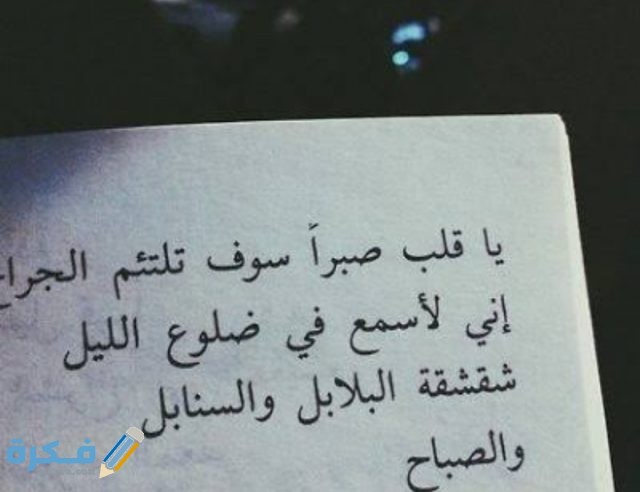 يا قلب صبراً سوف تلتئم الجراح
إني لأسمع في ضلوع الليل
شقشقة البلابل والسنابل
والصباح
فكرة